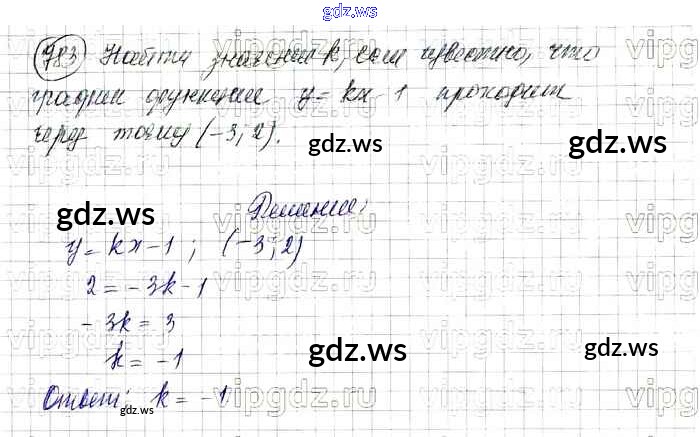 gdz.ws
783 Найти значения k, если известно, что
график функции y = kx - 1 проходит
через точку (-3; 2).
gdz.ws
gdz.ws
Решение:
gdz.ws
y = kx - 1 ; (-3; 2)
2 = -3k - 1
-3k = 3
k = -1
gdz.ws
gdz.ws
Ответ: k = -1
gdz.ws
vipgdz.ru